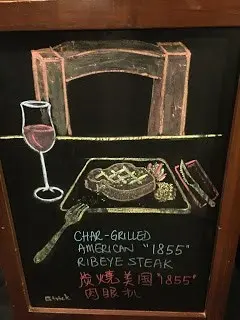 CHAR-GRILLED
AMERICAN "1855"
RIBEYE STEAK
炭燒美国"1855"
肉眼扒